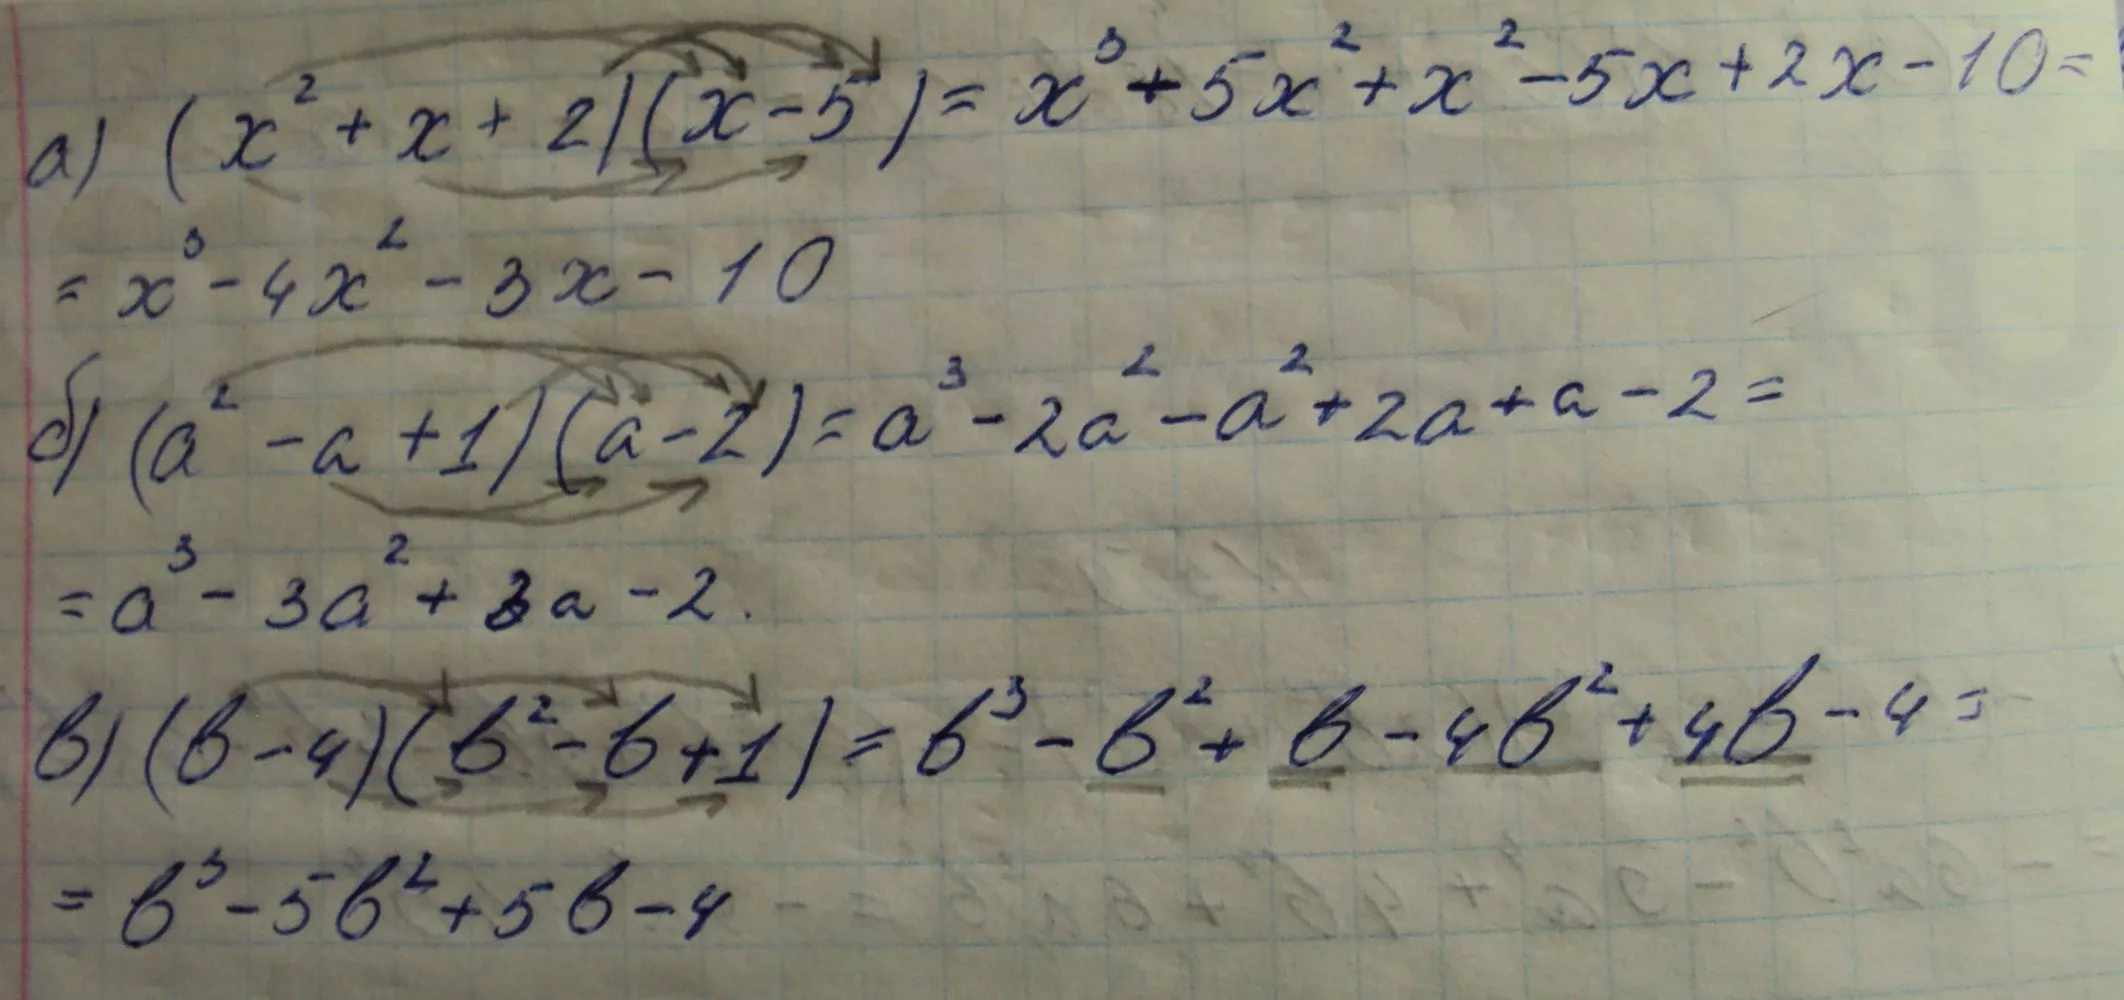 а) (x² + x + 2)(x - 5) = x³ + 5x² + x² - 5x + 2x - 10 =
= x³ - 4x² - 3x - 10
б) (a² - a + 1)(a - 2) = a³ - 2a² - a² + 2a + a - 2 =
= a³ - 3a² + 3a - 2.
в) (b - 4)(b² - b + 1) = b³ - b² + b - 4b² + 4b - 4 =
= b³ - 5b² + 5b - 4